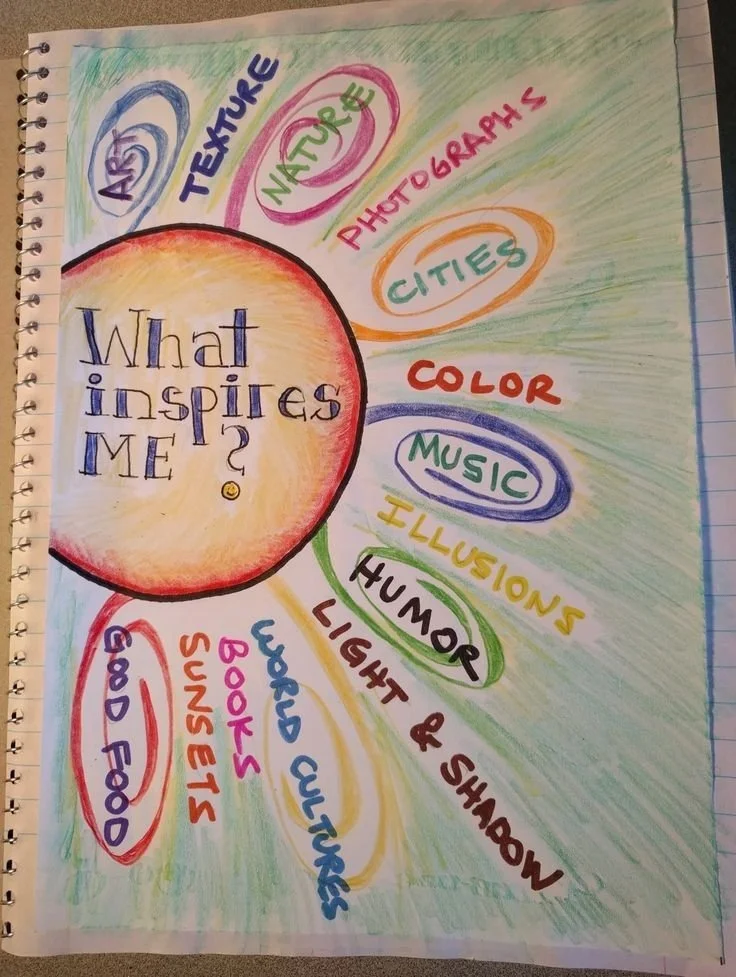 What
inspires
ME ?
ART
TEXTURE
NATURE
PHOTOGRAPHS
CITIES
COLOR
MUSIC
ILLUSIONS
HUMOR
LIGHT & SHADOW
WORLD CULTURES
BOOKS
SUNSETS
GOOD FOOD